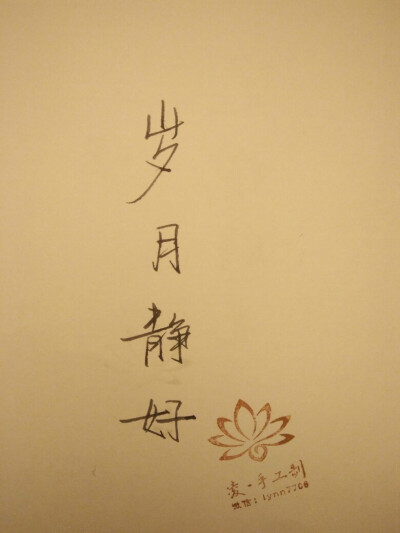 岁月静好
凌·手工制
微信：lynn7768